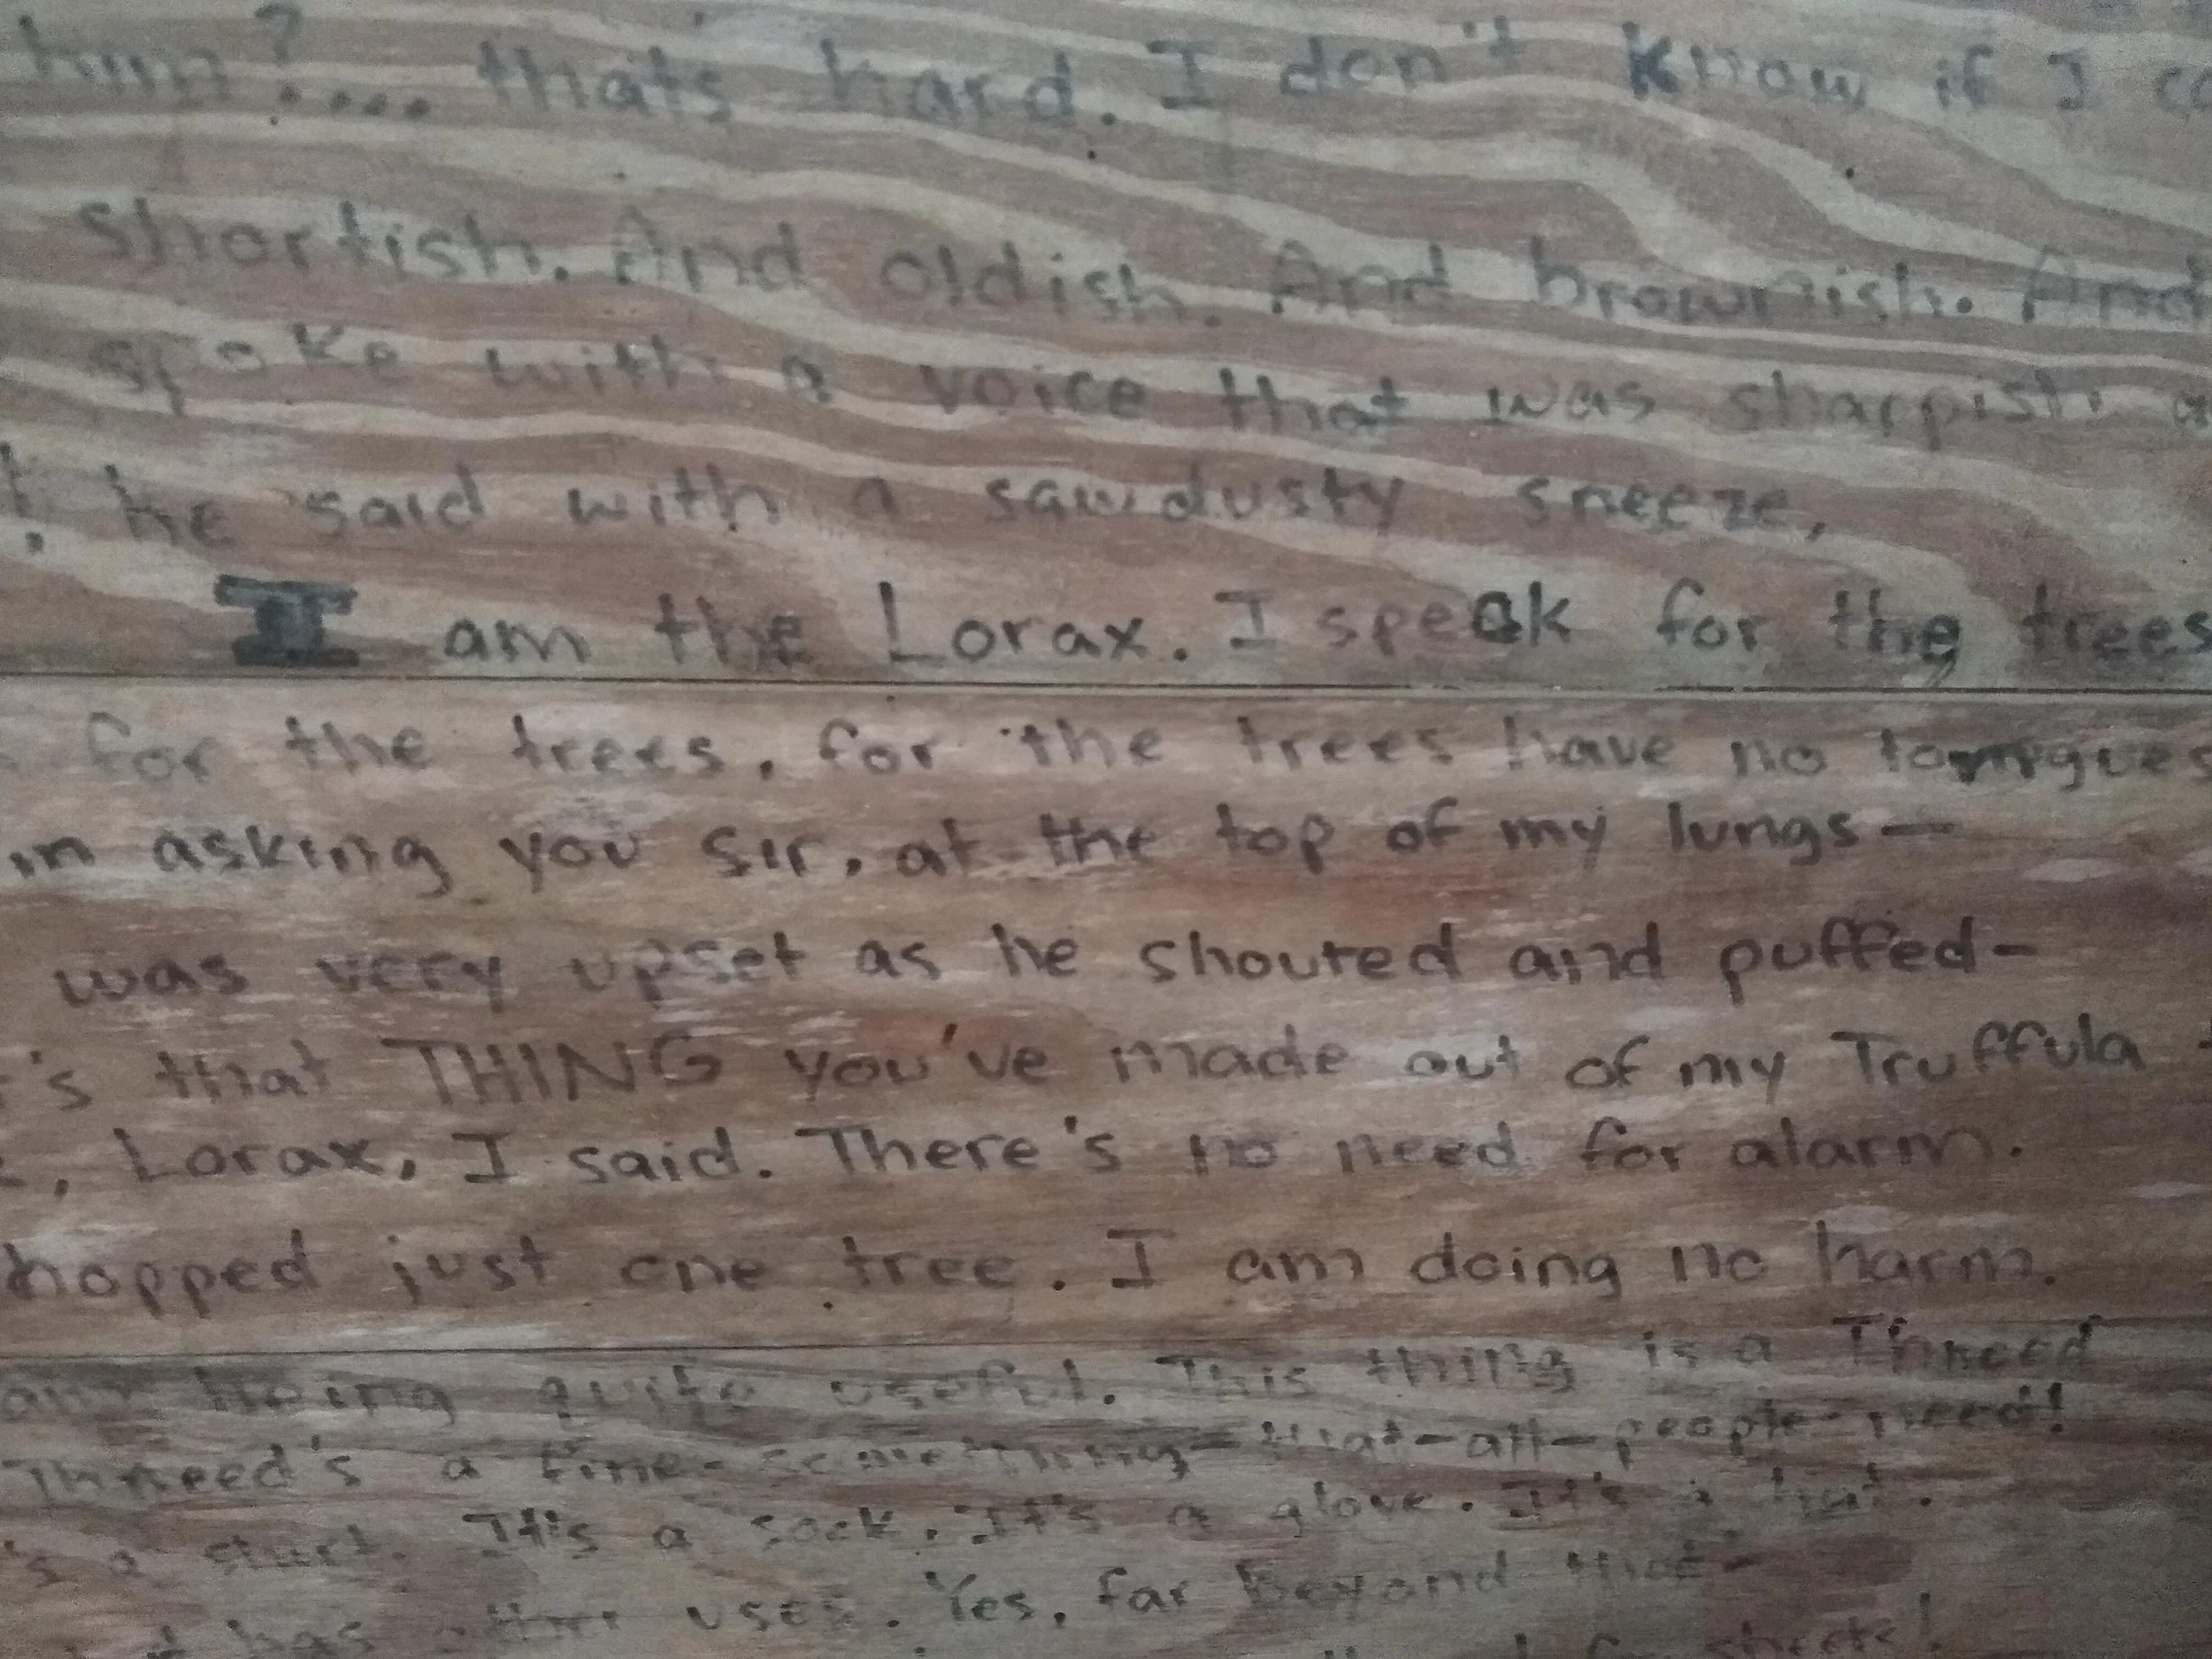 him?.... thats hard. I don't know if I
shortish. And oldish. And brownish. And
spoke with a voice that was sharpish
he said with a sawdusty sneeze,
I am the Lorax. I speak for the trees
for the trees, for the trees have no tongues
asking you sir, at the top of my lungs—
was very upset as he shouted and puffed-
's that THING you've made out of my Truffula
, Lorax, I said. There's no need for alarm.
hopped just one tree. I am doing no harm.
being quite useful. This thing is a Thneed
Thneed's a fine-something-that-all-people-need!
's a It's a sock. It's a glove. It's a hat.
has other uses. Yes, far Beyond that